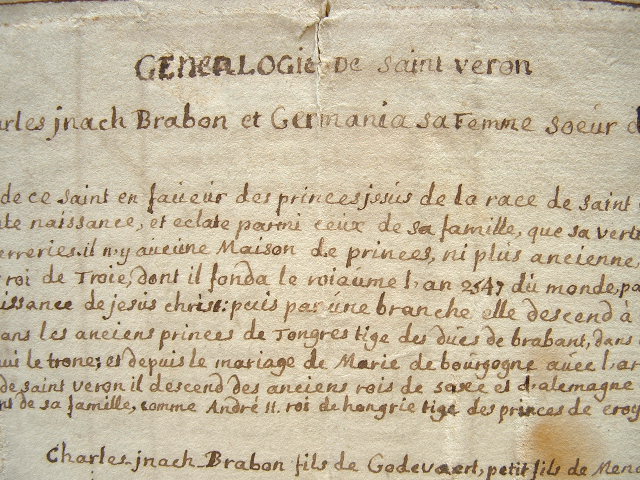 GENEALOGIE DE saint veron
arles jnach Brabon et Germania sa Femme soeur d
de ce saint en faueur des princes jesùs de la race de saint
te naissance, et eclate parmi ceux de sa famille, que sa vert
erreries. il n,y aucune Maison de princes, ni plus ancienne,
roi de Troie, dont il fonda le roiaúme l,an 2547 dú monde, pa
issance de jesús christ: puis par úne branche elle descend à
ans les anciens princes de Tongres tige des dúcs de brabant, dans
úi le trone; et depuis le mariage de Marie de boúrgogne aúec l,ar
de saint veron il descend des anciens rois de saxe et d,alemagne
nt de sa famille, comme André II. roi de hongrie tige des princes de croy
Charles-jnach-Brabon fils de Godevaert, petit fils de Men